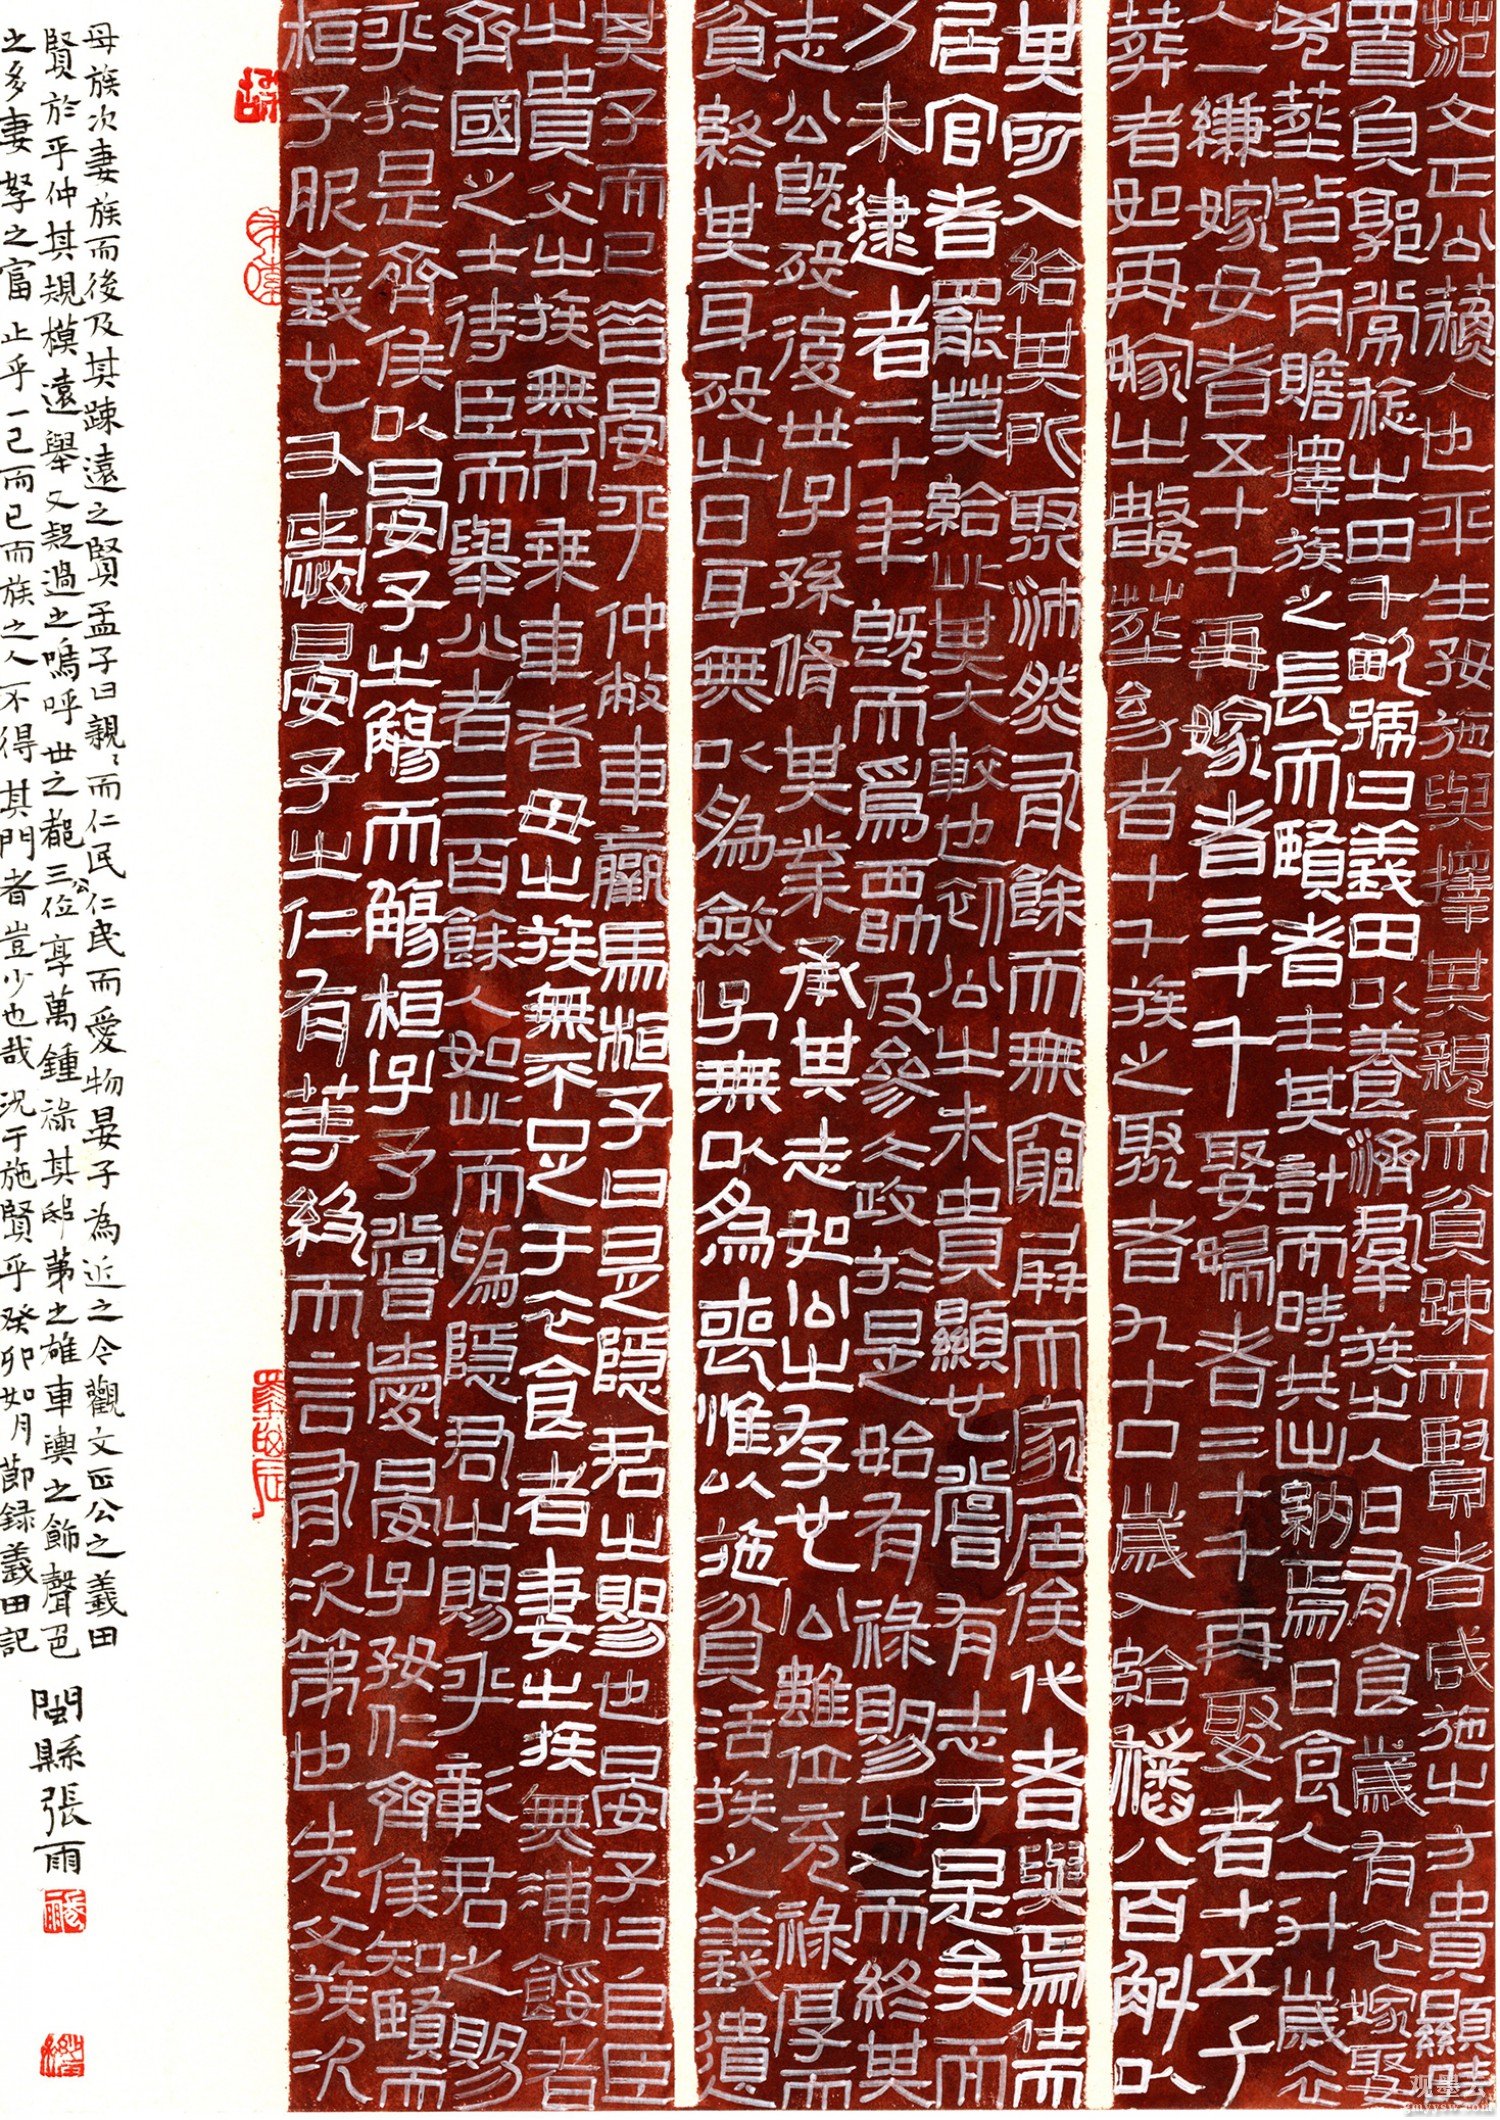 范文正公蘓人也平生好施與擇其親而貧踈而賢者咸施之方貴顯時
置負郭常稔之田千畝號曰義田以養濟羣族之人日有食歲有衣嫁娶
凶葬皆有贍擇族之長而賢者主其計而時共出納焉日食人一升歲衣
人一縑嫁女者五十千再嫁者三十千娶婦者三十千再娶者十五千
葬者如再嫁之數葬幼者十千族之聚者九十口歲入給稻八百斛以
其所入給其所聚沛然有餘而無窮屏而家居俟代者與焉仕而
居官者罷莫給此其大較也初公之未貴顯也嘗有志于是矣而
力未逮者二十年既而爲西帥及參大政於是始有祿賜之入而終其
志公既歿後世子孫脩其業承其志如公之存也公雖位充祿厚而
貧終其身歿之日身無以為斂子無以為喪惟以施貧活族之義遺
其子而已昔晏平仲敝車羸馬桓子曰是隱君之賜也晏子曰自臣
之貴父之族無不乘車者母之族無不足于衣食者妻之族無凍餒者
齊國之士待臣而舉火者三百餘人如此而爲隱君之賜乎彰君之賜
乎於是齊侯以晏子之觴而觴桓子予嘗愛晏子好仁齊侯知賢而
桓子服義也又愛晏子之仁有等級而言有次第也先父族次
母族次妻族而後及其踈遠之賢孟子曰親〻而仁民仁民而愛物晏子為近之今觀文正公之義田
賢於平仲其規模遠舉又疑過之嗚呼世之都三公位享萬鍾祿其邸第之雄車輿之飾聲色
之多妻孥之富止乎一己而已而族之人不得其門者豈少也哉況于施賢乎癸卯如月節録義田記
閩縣張雨
观墨去
gmyysw.com